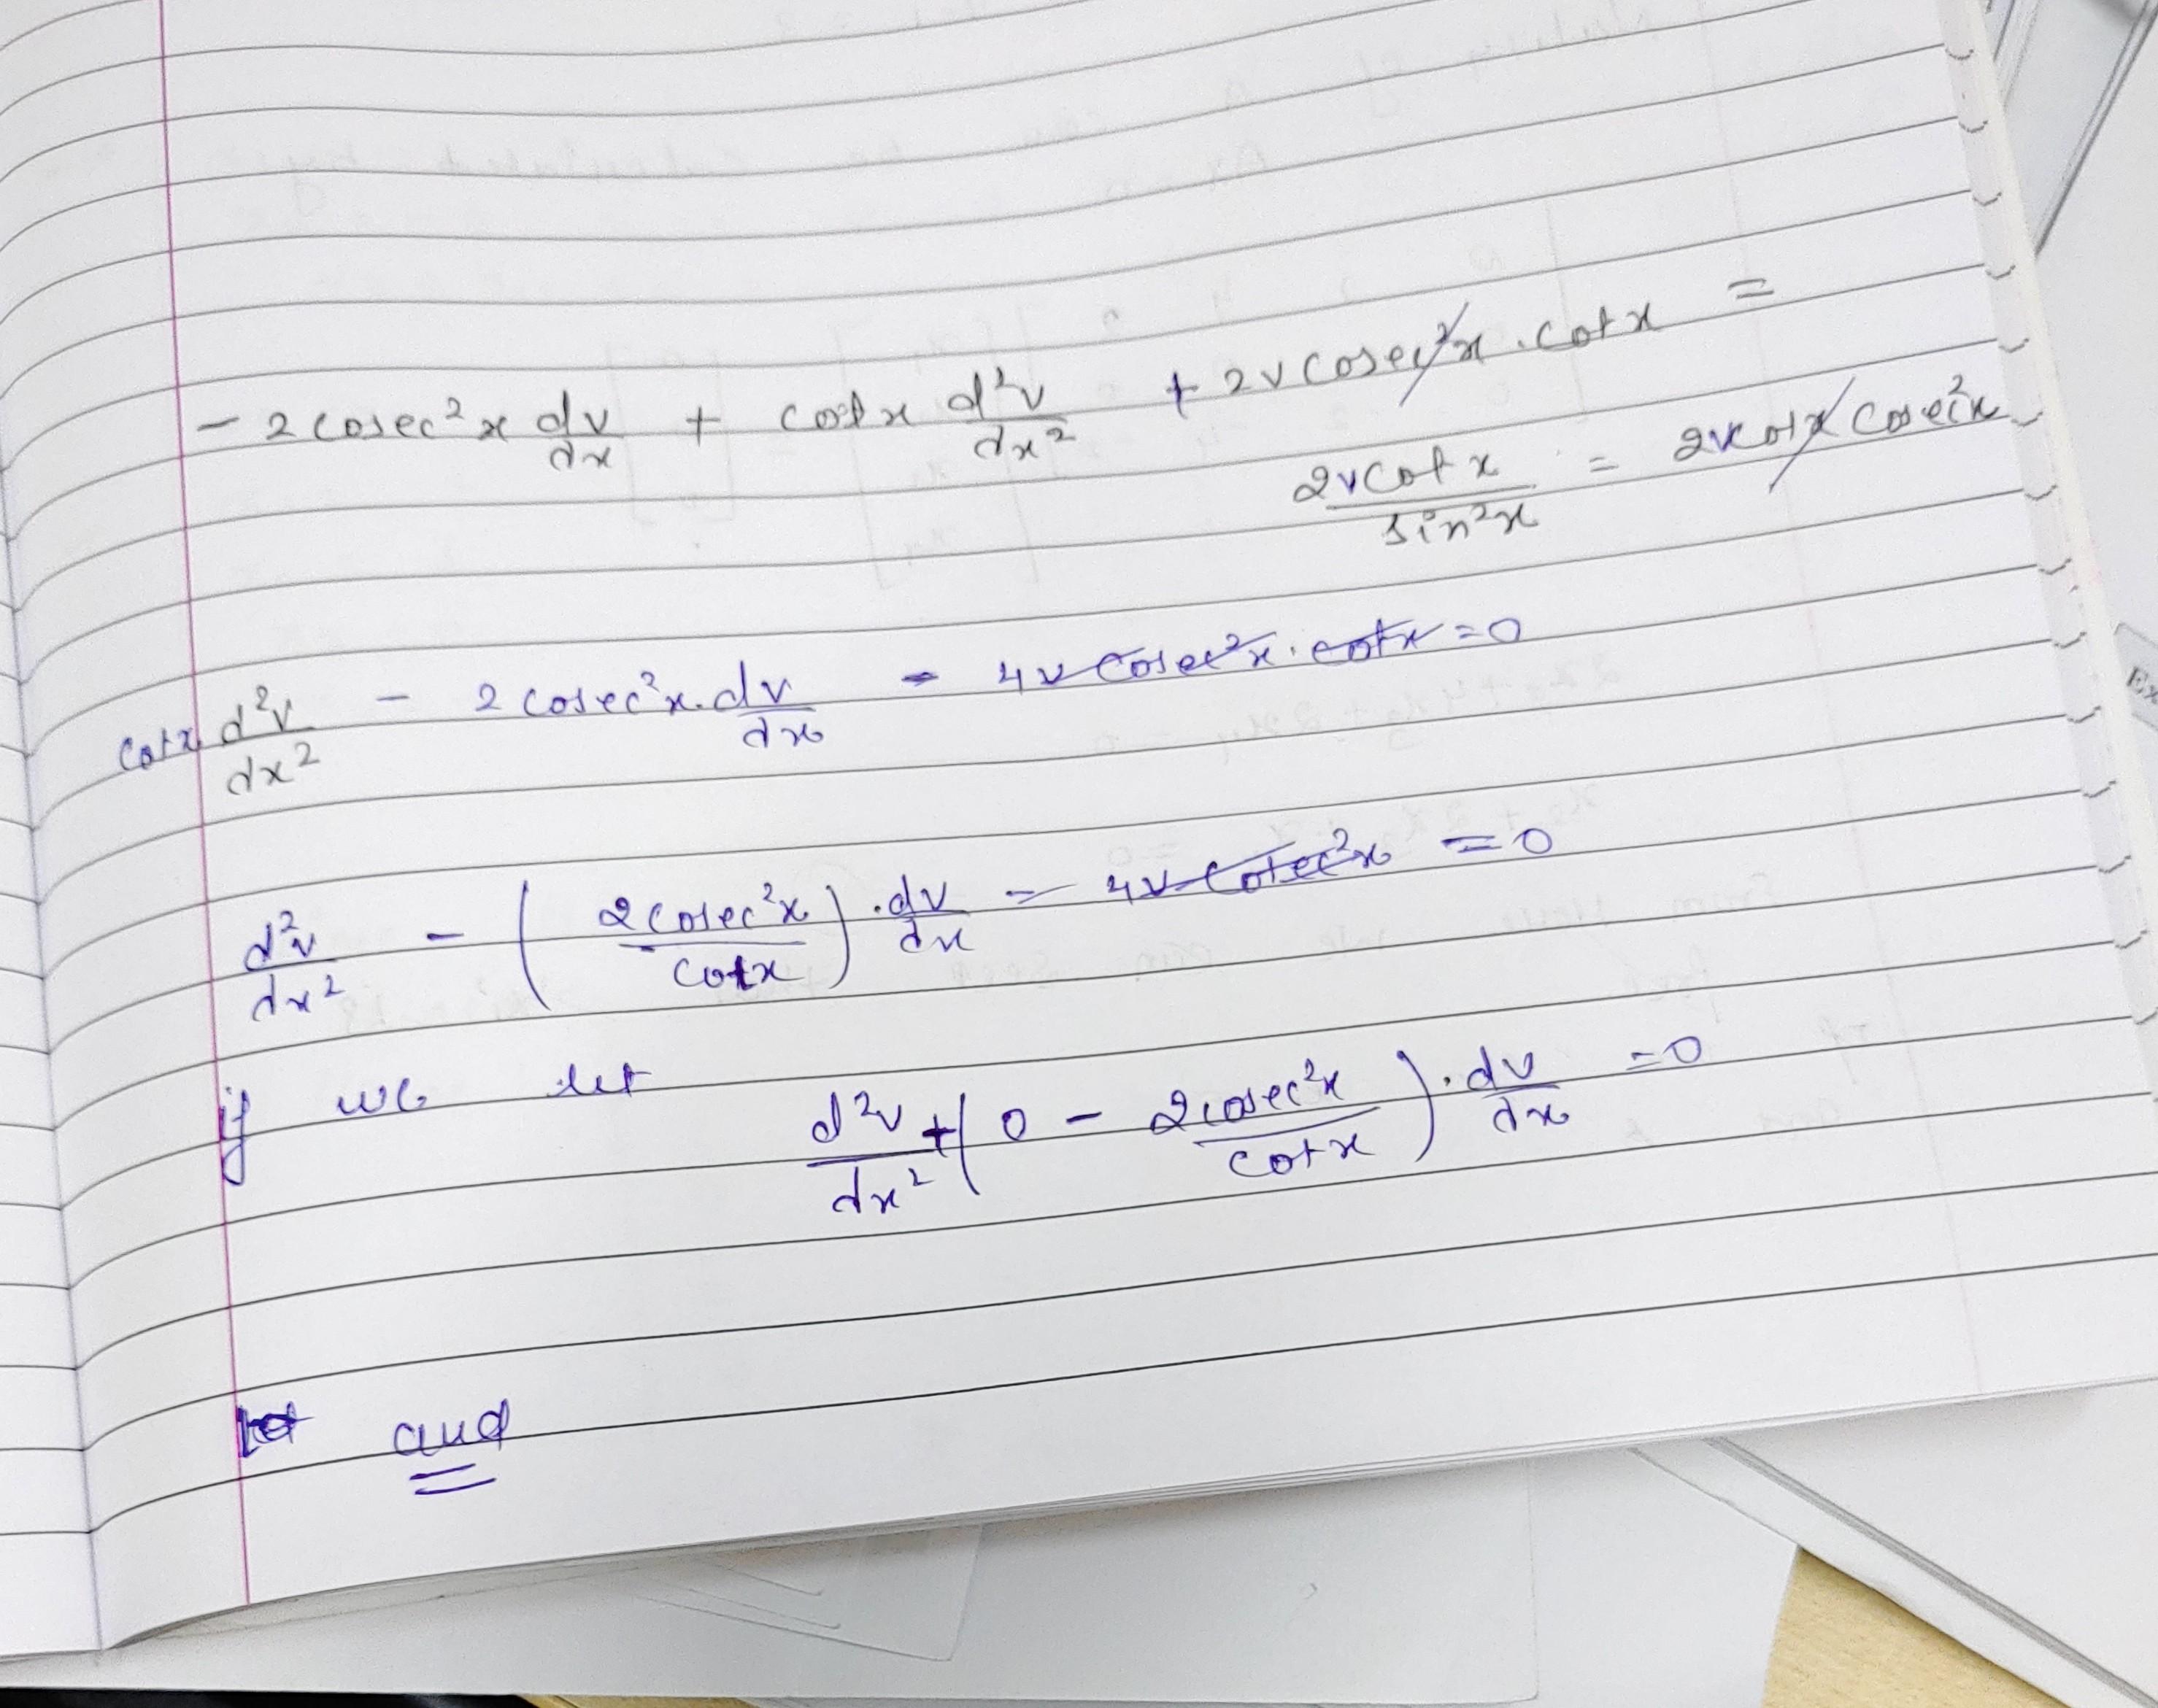 - 2 cosec²x dv/dx + cotx d²v/dx² + 2v cosec²x . cotx =
2vcotx/sin²x = 2vcotx cosec²x
cotx d²v/dx² - 2 cosec²x. dv/dx - 4v cosec²x . cotx = 0
d²v/dx² - (2cosec²x/cotx) . dv/dx - 4v cosec²x = 0
if we let d²v/dx² + (0 - 2cosec²x/cotx) . dv/dx = 0
and